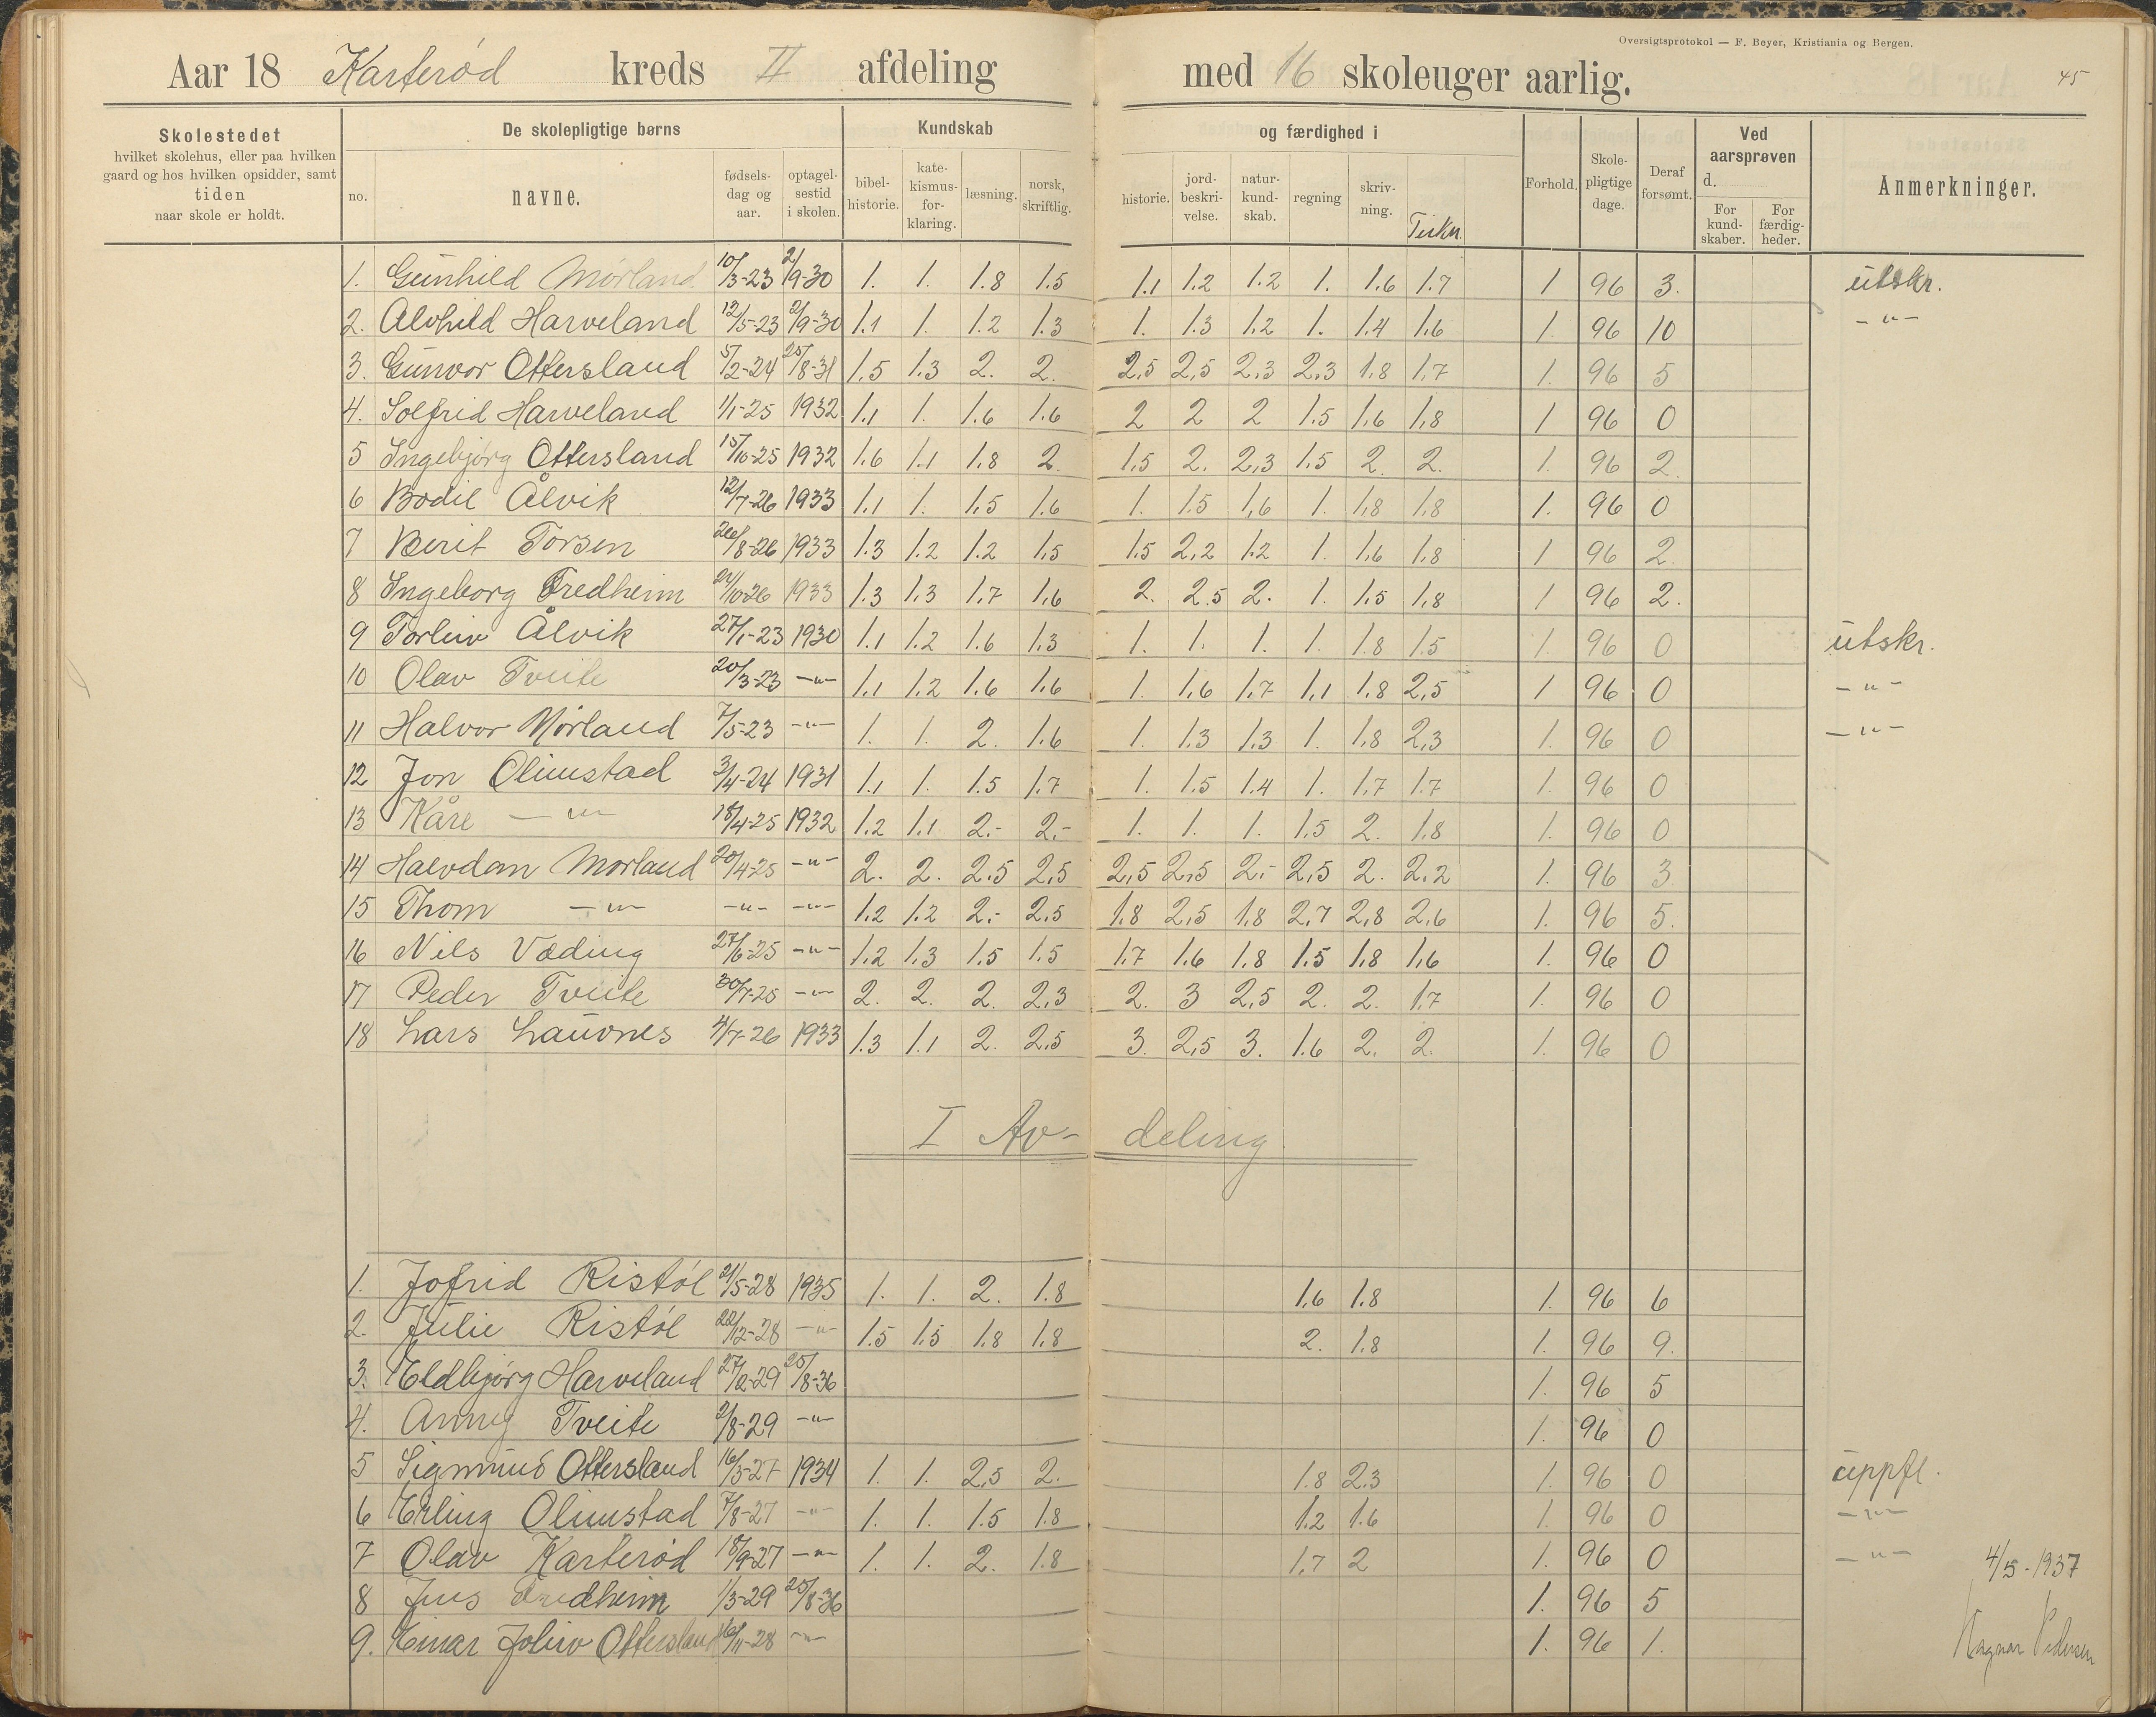 Oversigtsprotokol — F. Beyer, Kristiania og Bergen.
Aar 18 Karterød kreds II afdeling med 16 skoleuger aarlig. 45
Skolestedet
hvilket skolehus, eller paa hvilken
gaard og hos hvilken opsidder, samt
tiden
naar skole er holdt.
De skolepligtige børns
no.
navne.
fødsels-
dag og
aar.
optagel-
sestid
i skolen.
Kundskab
bibel-
historie.
kate-
kismus-
for-
klaring.
læsning.
norsk,
skriftlig.
og færdighed i
historie.
jord-
beskri-
velse.
natur-
kund-
skab.
regning
skriv-
ning.
Teikn.
Forhold.
Skole-
pligtige
dage.
Deraf
forsømt.
Ved
aarsprøven
d.
For
kund-
skaber.
For
færdig-
heder.
Anmerkninger.
1. Gunhild Mørland 10/3-23 2/9-30 1. 1. 1.8 1.5 1.1 1.2 1.2 1. 1.6 1.7 1 96 3. utskr.
2. Alvhild Harveland 12/5-23 2/9-30 1.1 1. 1.2 1.3 1. 1.3 1.2 1. 1.4 1.6 1. 96 10 -"-
3. Gunvor Ottersland 5/2-24 25/8-31 1.5 1.3 2. 2. 2,5 2,5 2.3 2.3 1.8 1.7 1. 96 5
4. Solfrid Harveland 1/1-25 1932 1.1 1. 1.6 1.6 2 2 2 1.5 1.6 1.8 1 96 0
5 Ingebjørg Ottersland 15/10-25 1932 1.6 1.1 1.8 2. 1.5 2. 2,3 1.5 2. 2. 1. 96 2.
6 Bodil Ålvik 12/7-26 1933 1.1 1. 1.5 1.6 1. 1.5 1,6 1. 1.8 1.8 1. 96 0
7 Berit Torsen 26/8-26 1933 1.3 1.2 1.2 1.5 1.5 2,2 1.2 1. 1.6 1.8 1 96 2.
8 Ingeborg Fredheim 24/10-26 1933 1.3 1.3 1.7 1.6 2. 2.5 2. 1. 1.5 1.8 1 96 2.
9 Torleiv Ålvik 27/1-23 1930 1.1 1.2 1.6 1.3 1. 1. 1. 1. 1.8 1.5 1. 96 0 utskr.
10 Olav Tveite 20/3-23 -"- 1.1 1.2 1.6 1.6 1. 1.6 1.7 1.1 1.8 2,5 1 96 0 -"-
11 Halvor Mørland 7/5-23 -"- 1. 1. 2. 1.6 1. 1.3 1.3 1. 1.8 2,3 1. 96 0 -"-
12 Jon Olimstad 3/4-24 1931 1.1 1. 1.5 1.7 1. 1.5 1.4 1. 1.7 1.7 1. 96 0
13 Kåre -"- 18/4-25 1932 1.2 1.1 2.- 2.- 1. 1. 1. 1.5 2. 1.8 1. 96 0
14 Halvdan Mørland 20/4-25 -"- 2. 2. 2.5 2,5 2,5 2,5 2.- 2,5 2. 2.2 1. 96 3
15 Thom -"- -"- -"- 1.2 1.2 2.- 2.5 1.8 2,5 1.8 2.7 2,8 2,6 1. 96 5.
16 Nils Væding 27/6-25 -"- 1.2 1.3 1.5 1.5 1.7 1.6 1.8 1.5 1.8 1.6 1. 96 0
17 Peder Tveite 30/7-25 -"- 2. 2. 2. 2,3 2. 3 2,5 2. 2. 1.7 1. 96 0
18 Lars Lauvnes 4/7-26 1933 1.3 1.1 2. 2.5 3. 2,5 3. 1.6 2. 2. 1. 96 0
I Av- deling.
1. Jofrid Ristøl 21/5-28 1935 1. 1. 2. 1.8 1.6 1.8 1. 96 6
2. Julie Ristøl 22/12-28 -"- 1.5 1.5 1.8 1.8 2. 1.8 1. 96 9.
3. Eldbjørg Harveland 27/2-29 25/8-36 1. 96 5
4. Anny Tveite 2/8-29 -"- 1. 96 0
5 Sigmund Ottersland 16/3-27 1934 1. 1. 2,5 2. 1.8 2.3 1. 96 0 uppfl.
6 Erling Olimstad 7/8-27 -"- 1. 1. 1.5 1.8 1.2 1.6 1. 96 0 -"-
7 Olav Karterød 18/9-27 -"- 1. 1. 2. 1.8 1.7 2 1. 96 0 -"-
8 Jens Fredheim 1/3-29 25/8-36 1. 96 5
9. Einar Joleiv Ottersland 16/11-28 -"- 1. 96 1.
4/5-1937
Ragnar Pedersen